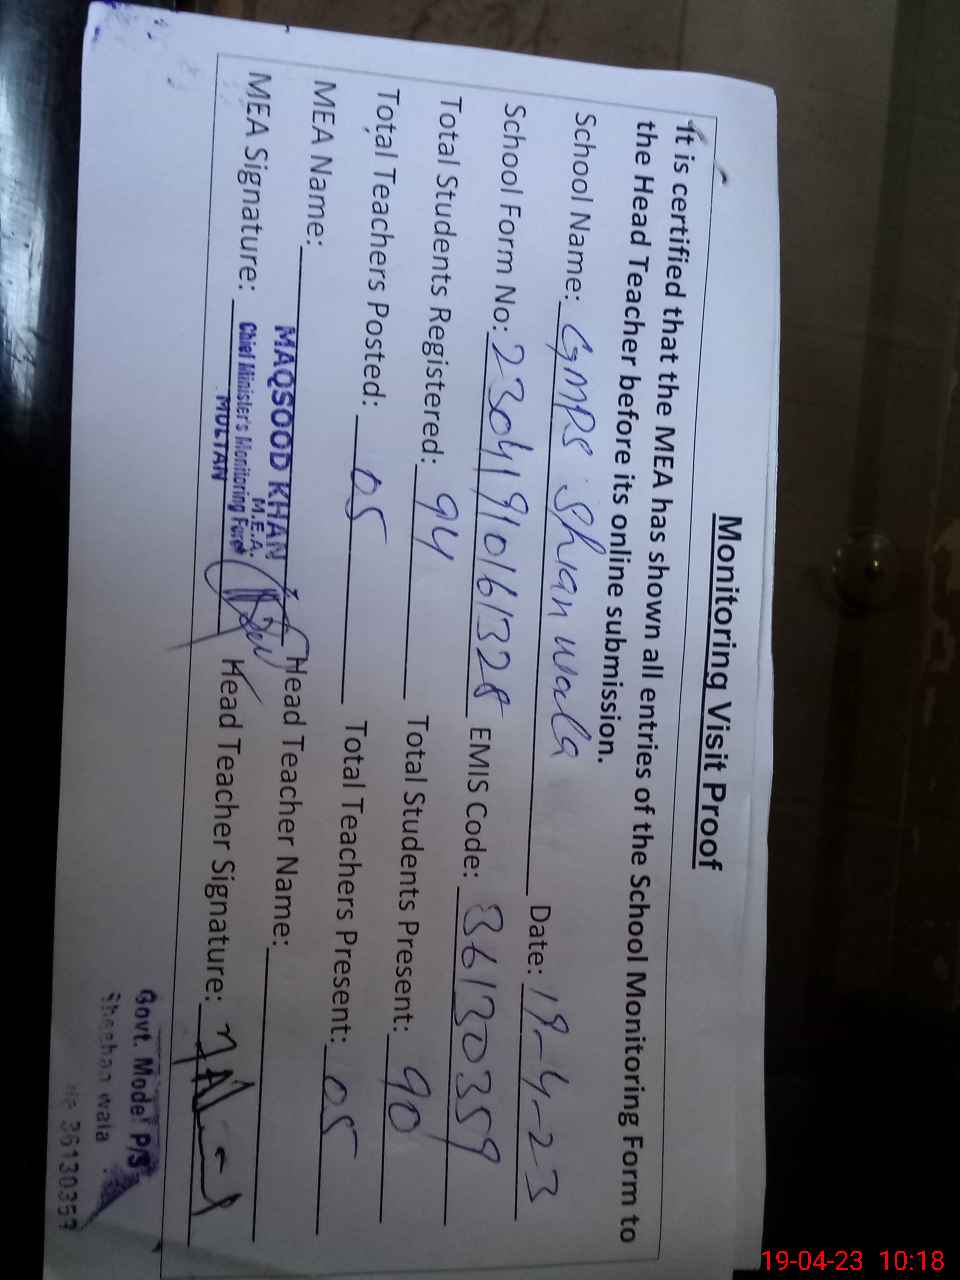 Monitoring Visit Proof
It is certified that the MEA has shown all entries of the School Monitoring Form to
the Head Teacher before its online submission.
School Name: GMPS Shian wala Date: 19-4-23
School Form No: 23041910161328 EMIS Code: 36130359
Total Students Registered: 94 Total Students Present: 90
Total Teachers Posted: 05 Total Teachers Present: 05
MEA Name: MAQSOOD KHAN Head Teacher Name:
M.E.A.
MEA Signature: Chief Minister's Monitoring Force Head Teacher Signature:
MULTAN
Govt. Model P/S
Sheehan wala
36130359
19-04-23 10:18